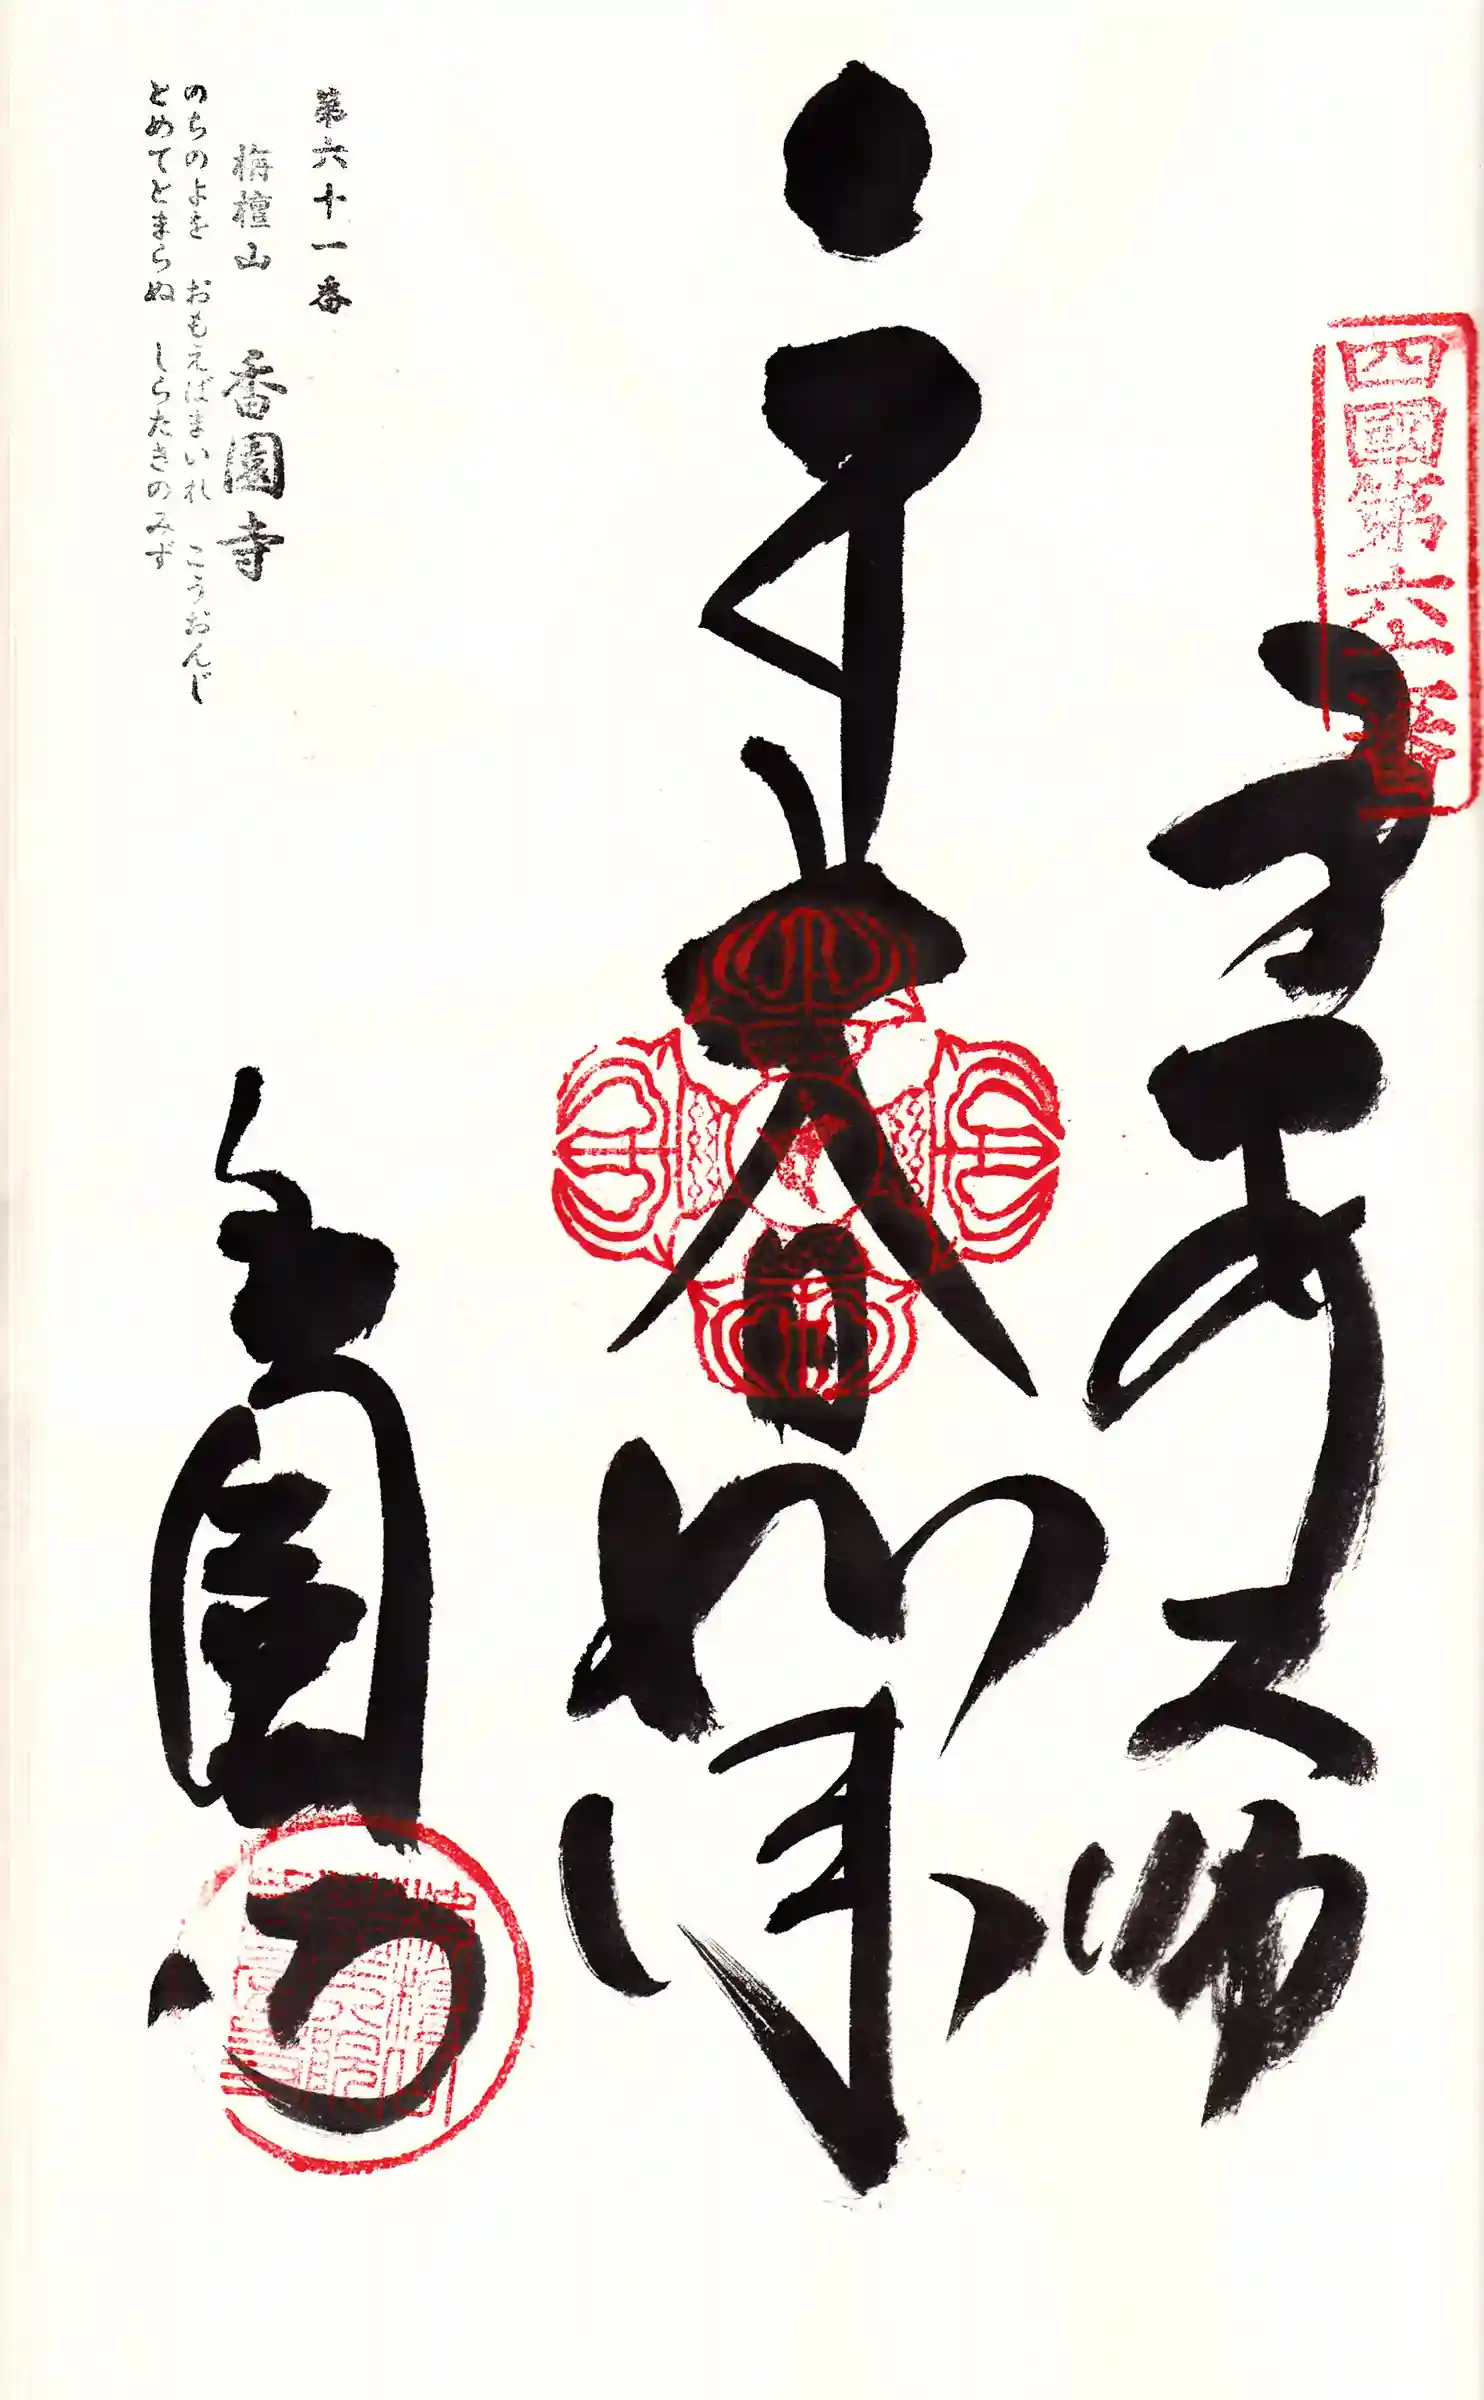 四國第六十一番
子安大師
大日如来
香園寺
第六十一番
栴檀山 香園寺
のちのよを おもえばまいれ こうおんじ
とめてとまらぬ しらたきのみず